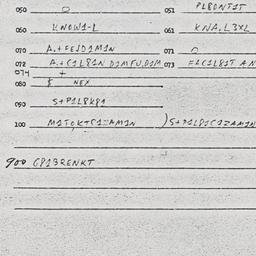 050 O 051 PLBONT1T
060 KNOW1-L 061 KNA.L3XL
070 A.+FEJD1M1N 071 O
072 A.+C1L81N D1MFU.D1M 073 F1C1L81T AN
074 +
080 $ NEX
090 S+P1L8K81
100 )S+P1L81C1ZAM1N
900 C813RENKT